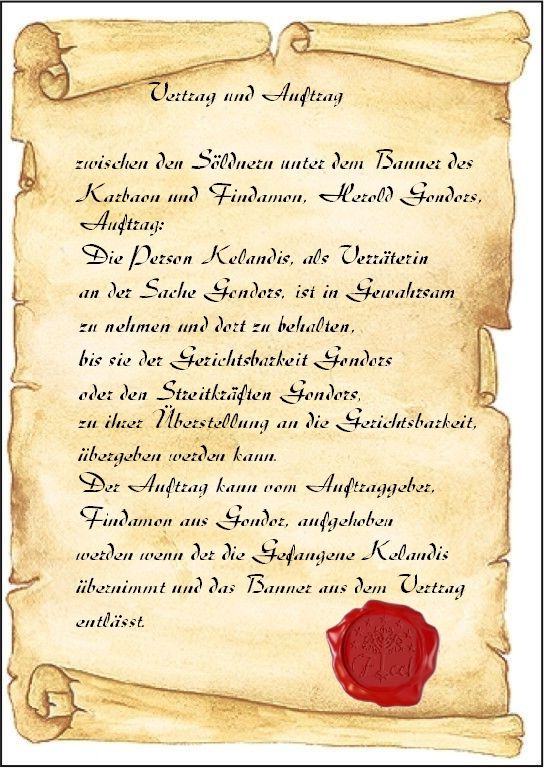 Vertrag und Auftrag
zwischen den Söldnern unter dem Banner des
Karbaon und Findamon, Herold Gondors,
Auftrag:
Die Person Kelandis, als Verräterin
an der Sache Gondors, ist in Gewahrsam
zu nehmen und dort zu behalten,
bis sie der Gerichtsbarkeit Gondors
oder den Streitkräften Gondors,
zu ihrer Überstellung an die Gerichtsbarkeit,
übergeben werden kann.
Der Auftrag kann vom Auftraggeber,
Findamon aus Gondor, aufgehoben
werden wenn der die Gefangene Kelandis
übernimmt und das Banner aus dem Vertrag
entlässt.